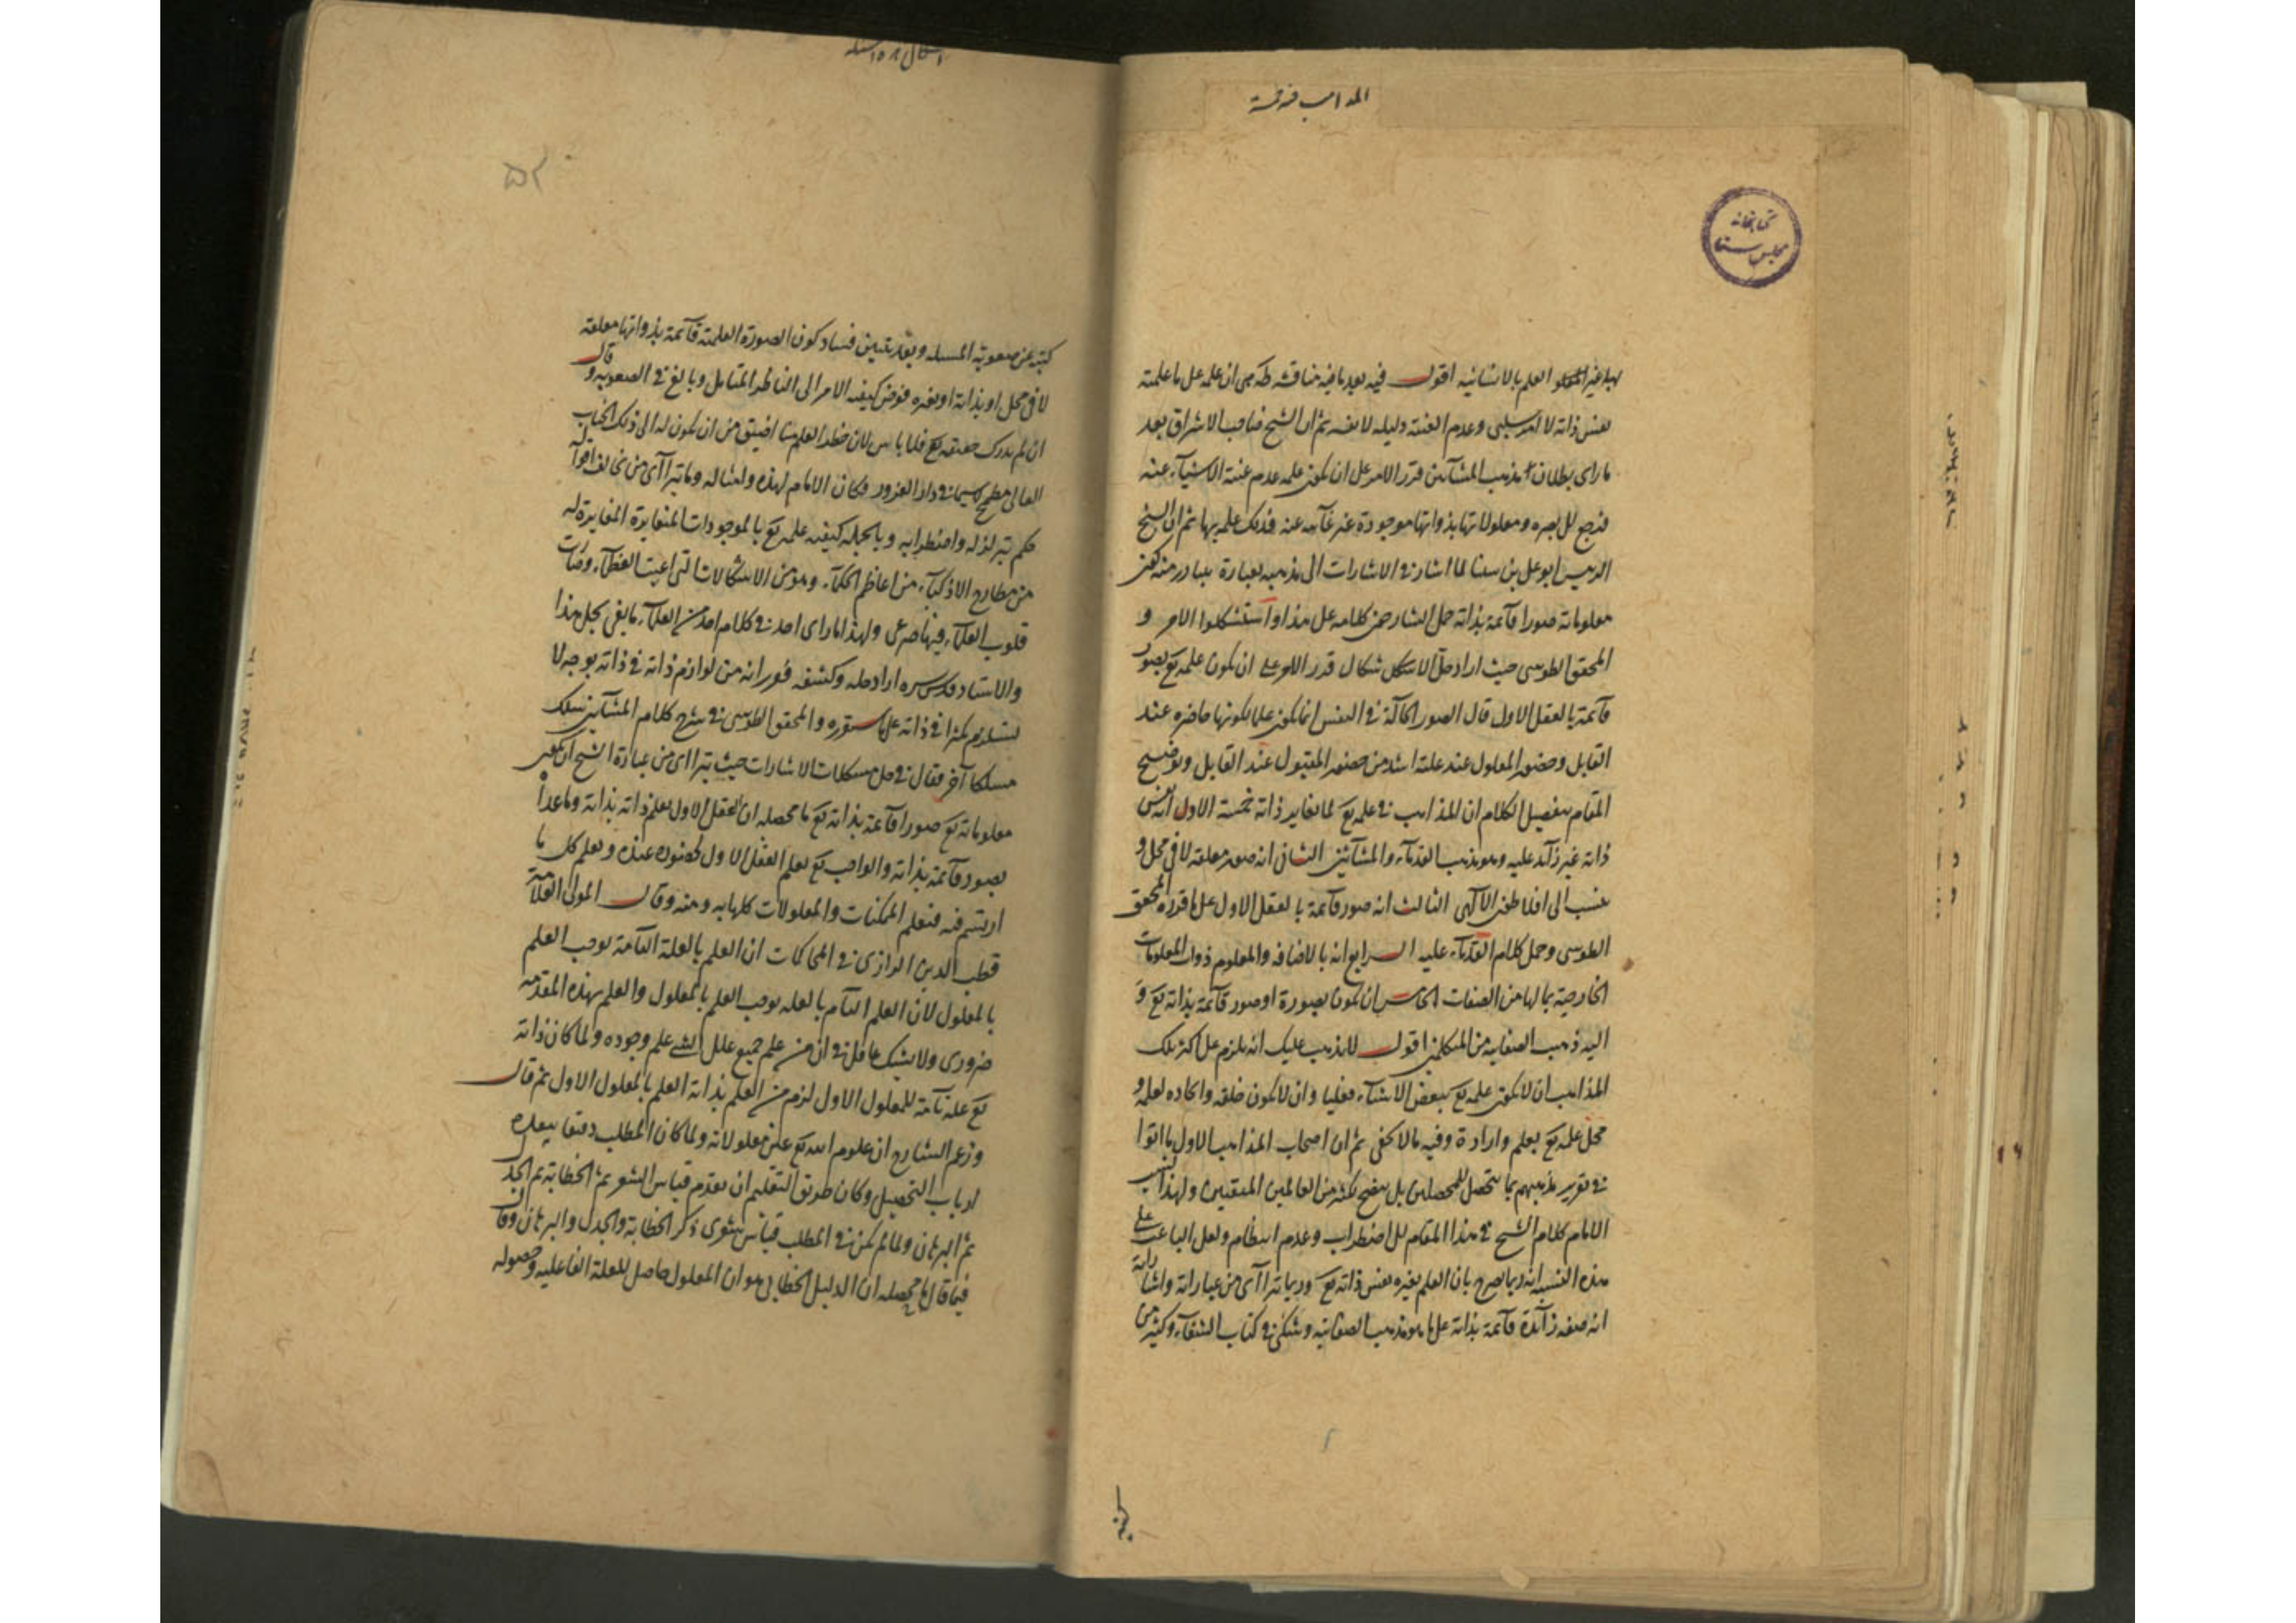 المذاهب فيه خمسة
كتابخانه
مجلس سنا
العلم بالاشياء اقول فيه بعد ما فيه مناقشة ان علمه على ما علمته
نفس ذاته لا امر سلبى وعدم الغيبة دليله لا نفسه ثم ان الشيخ صاحب الاشراق بعد
ما راى بطلان مذهب المشائين قرر الامر على ان يكون علمه عدم غيبة الاشياء عنه
فرجع الى بصره ومعلولاتها بذواتها موجودة غير غائبة عنه فذلك علمه بها ثم ان الشيخ
الرئيس ابو على بن سينا لما اشار فى الاشارات الى مذهبه بعبارة يتبادر منه كون
معلوماته صورا قائمة بذاته حمل الشارحين كلامه على هذا واستشكلوا الامر و
المحقق الطوسى حيث اراد حل الاشكال قرر الامر على ان يكون علمه تع بصور
قائمة بالعقل الاول قال الصور الحالة فى النفس انما يكون علما بكونها حاضره عند
القابل وحضور المعلول عند علته اشد من حضور المقبول عند القابل وتوضيح
المقام بتفصيل الكلام ان المذاهب فى علمه تع لما يغاير ذاته خمسة الاول انه نفس
ذاته غير زائد عليه وهو مذهب القدماء والمشائين الثانى انه صور معلقة لا فى محل و
ينسب الى افلاطون الالهى الثالث انه صور قائمة بالعقل الاول على ما قرره المحقق
الطوسى وحمل كلام القدماء عليه الرابع انه بالاضافه والمعلوم ذوات المعلومات
الخارجية بما لها من الصفات الخامس ان يكون بصورة او صور قائمة بذاته تع و
اليه ذهب الصفاتيه من المتكلمين اقول لا يذهب عليك انه يلزم على اكثر تلك
المذاهب ان لا يكون علمه تع ببعض الاشياء فعليا وان لا يكون خلقه وايجاده لعلمه و
محل علمه تع بعلم وارادة وفيه ما لا يخفى ثم ان اصحاب المذاهب الاول ما اتوا
فى تقرير مذهبهم بما يتحصل للمحصلين بل يتضح لكثير من العالمين المتقنين ولهذا نسب
الامام كلام الشيخ فى هذا المقام الى الاضطراب وعدم انتظام ولعل الباعث على
هذه النسبة انه ربما يصرح بان العلم بغيره نفس ذاته تع وربما يترا آى من عباراته واشاراته
انه صفه زائدة قائمة بذاته على ما هو مذهب الصفاتيه وشكى فى كتاب الشفاء وكثير من
كتبه
۵۲
كتبه عن صعوبة المسئله وبعد تبيين فساد كون الصورة العلمية قائمة بذواتها معلقة
لا فى محل او بذاته او بغيره فوض كيفيه الامر الى الناظر المتامل وبالغ فى الصعوبه وقال
ان لم يدرك حقيقته تع فلا باس لان خطر العلم منا اضيق من ان يكون له الى ذلك الجناب
العالى مطمح سيما فى دار الغرور وكان الامام لهذه وامثاله وما يترا آى من تخالف اقواله
حكم بتزلزله واضطرابه وبالجمله كيفيه علمه تع بالموجودات المتغايرة المغايرة له
من مطارح الاذكياء من اعاظم الحكماء وهو من الاشكالات التى اعيت الفضلاء وصارت
قلوب العلماء فيها صرعى ولهذا ما راى احد فى كلام احد من العلماء ما يفى بحل هذا
والاستاد قدس سره اراد حله وكشفه فقرر انه من لوازم ذاته فى ذاته بوجه لا
يستلزم تكثرا فى ذاته على ما ستقرره والمحقق الطوسى فى شرح كلام المشائين سلك
مسلكا آخر فقال فى حل مشكلات الاشارات حيث يتراآى من عبارة الشيخ ان يكون
معلوماته تع صورا قائمة بذاته تع ما محصله ان العقل الاول يعلم ذاته بذاته وما عداه
بصور قائمة بذاته والواجب تع يعلم العقل الاول لحضوره عنده ويعلم كل ما
ارتسم فيه فيعلم الممكنات والمعلولات كلها به ومنه وقال المولى العلامة
قطب الدين الرازى فى المحاكمات ان العلم بالعلة التامة يوجب العلم
بالمعلول لان العلم التام بالعله يوجب العلم بالمعلول والعلم بهذه المقدمه
ضرورى ولا يشك عاقل فى ان من علم جميع علل الشئ علم وجوده ولما كان ذاته
تع علة تامة للمعلول الاول لزم من العلم بذاته العلم بالمعلول الاول ثم قال
وزعم الشارح ان علوم الله تع عين معلولاته ولما كان المطلب دقيقا
ارباب التحصيل وكان طريق التعليم ان يقدم قياس الشعر ثم الخطابة ثم الجدل
ثم البرهان ولما لم يكن فى المطلب قياس شعرى ذكر الخطابة والجدل والبرهان وقال
فيما قال ما محصله ان الدليل الخطابى هو ان المعلول حاصل للعلة الفاعليه وحصوله